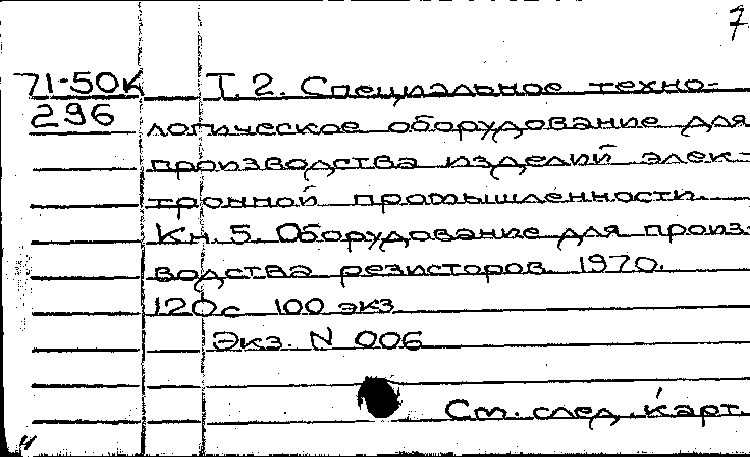 7.
71-50к Т. 2. Специальное техно-
296 логическое оборудование для
производства изделий элек-
тронной промышленности.
Кн. 5. Оборудование для произ-
водства резисторов. 1970.
120с 100 экз.
Экз. N 006
См. след. карт.